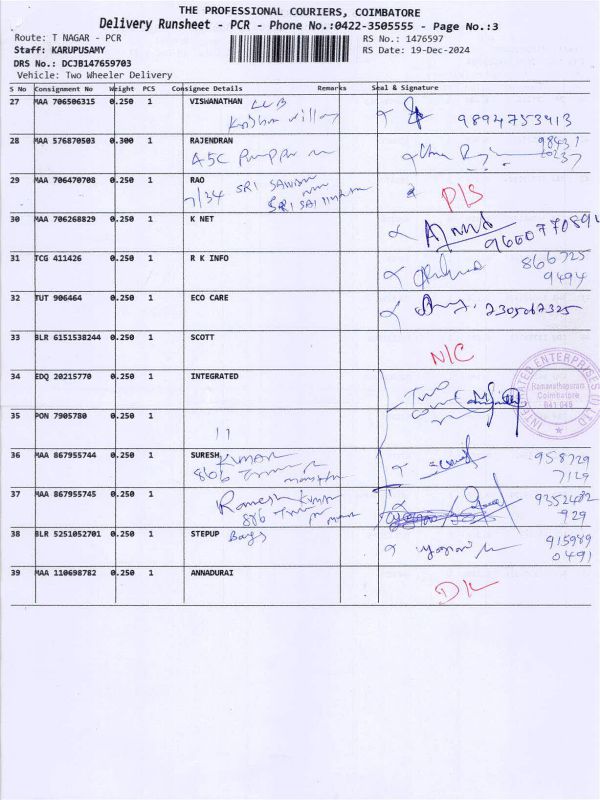 THE PROFESSIONAL COURIERS, COIMBATORE
Delivery Runsheet - PCR - Phone No.:0422-3505555 - Page No.:3
Route: T NAGAR - PCR
RS No.: 1476597
Staff: KARUPUSAMY
RS Date: 19-Dec-2024
DRS No.: DCJB147659703
Vehicle: Two Wheeler Delivery
S No Consignment No Weight PCS Consignee Details Remarks Seal & Signature
27 MAA 706506315 0.250 1 VISWANATHAN
9894753413
28 MAA 576870503 0.300 1 RAJENDRAN
A5C
29 MAA 706470708 0.250 1 RAO
7/34 SRI
SRI SAI
P/S
30 MAA 706268829 0.250 1 K NET
31 TCG 411426 0.250 1 R K INFO
866725
9494
32 TUT 906464 0.250 1 ECO CARE
7305067325
33 BLR 6151538244 0.250 1 SCOTT
N/C
34 EDQ 20215770 0.250 1 INTEGRATED
INTEGRATED ENTERPRISES (I) LTD
Ramanathapuram
Coimbatore
641 045
35 PON 7905780 0.250 1
11
36 MAA 867955744 0.250 1 SURESH KUMAR
806
958729
7129
37 MAA 867955745 0.250 1
Ramesh Kumar
886
9352482
929
38 BLR 5251052701 0.250 1 STEPUP Bags
915989
0491
39 MAA 110698782 0.250 1 ANNADURAI